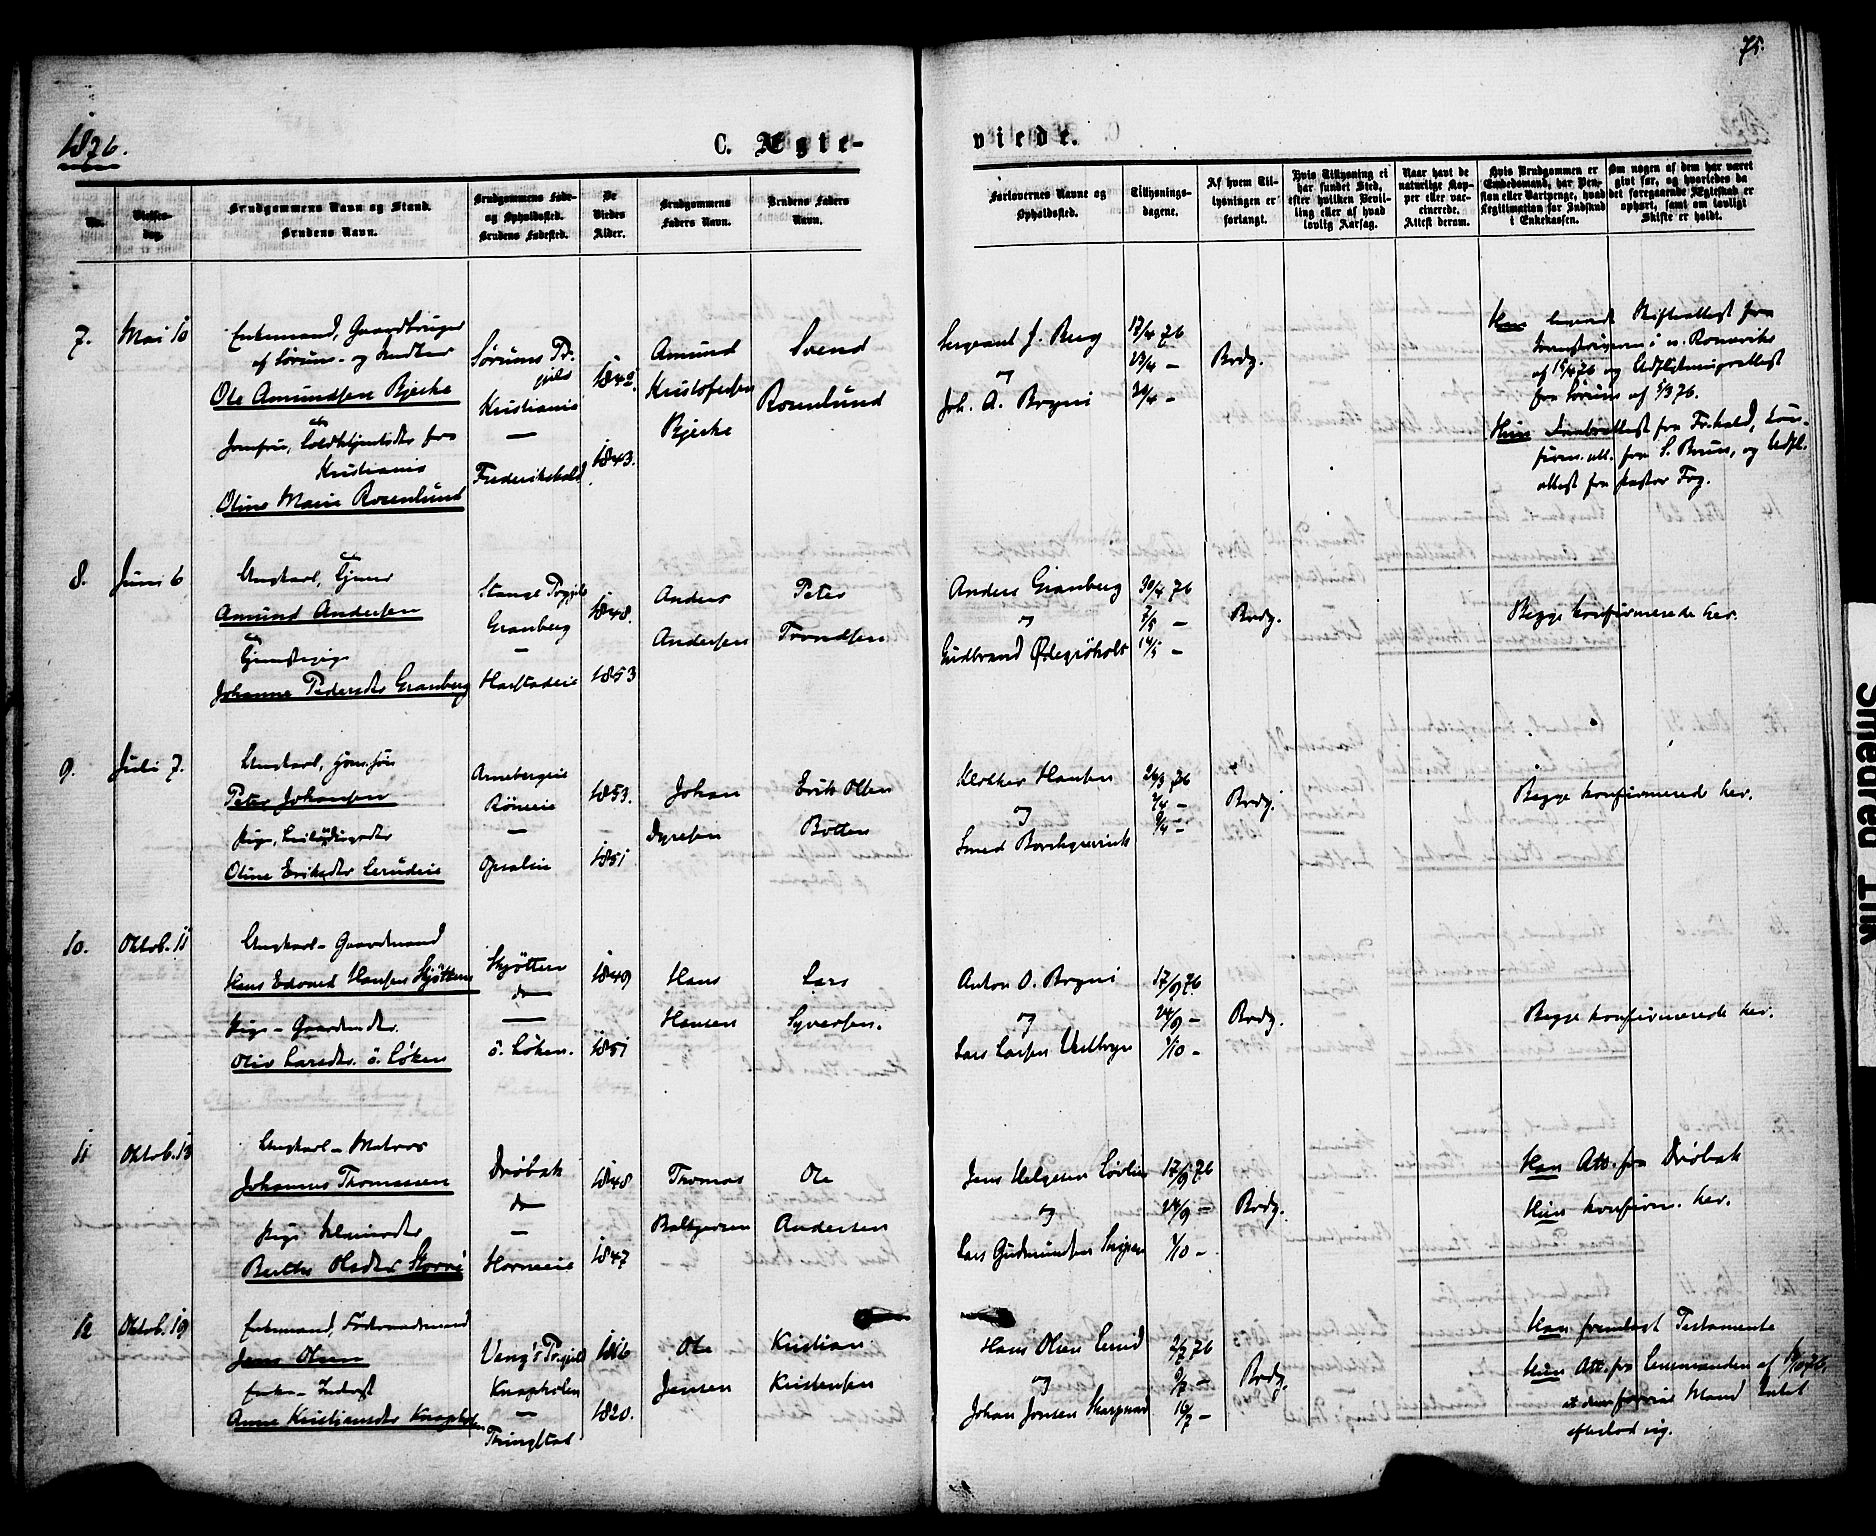 75.
1876.
C. Ægte-
viede.
No.
Vielses-
dag.
Brudgommens Navn og Stand.
Brudens Navn.
Brudgommens Føde-
og Opholdssted.
Brudens Fødested.
De
Viedes
Alder.
Brudgommens
Faders Navn.
Brudens Faders
Navn.
Forlovernes Navne og
Opholdssted.
Tillysnings-
dagene.
Af hvem Til-
lysningen er
forlangt.
Hvis Tillysning ei
har fundet Sted,
efter hvilken Bevil-
ling eller af hvad
lovlig Aarsag.
Naar havt de
naturlige Kop-
per eller vac-
cinerede.
Attest derom.
Hvis Brudgommen er
Embedsmand, har Pen-
sion eller Vartpenge, hvad
Legitimation for Indskud
i Enkekassen.
Om nogen af dem har været
gift før, og hvorledes da
det foregaaende Ægteskab er
ophørt, samt om lovligt
Skifte er holdt.
7.
Mai 10
Enkemand, Gaardbruger
af Sørum- og
Ole Amundsen Bjerke
Jomfru, fra
Kristiania
Oline Marie Rosenlund
Sørums Pr-
gjeld
Kristiania
—
Frederikshald
1842.
1843.
Amund
Kristofersen
Bjerke
Svend
Rosenlund
Sergeant J. Berg
og
Joh. A. Bryni
17/4 76
23/4 -
30/4 -
Brdg.
Han leverede Skifteattest fra
Sorenskriveren i n. Romerike
af 15/4 76 og Udflytningsattest
fra Sørum af 5/3 76.
Hun Daabsattest fra Fr.hald, Kon-
firm. att. fra S. Brun, og Udfl.
attest fra pastor Fog.
8.
Juni 6
Ungkarl, Tjener
Amund Andersen
Tjenestepige
Johanne Pedersdtr Granberg
Stange Prgjeld
Granberg
—
Harstadeie
1848.
1853
Anders
Andersen
Peter
Trondsen
Anders Granberg
og
Gudbrand Ødegrøholt
30/4 76
7/5 -
14/5 -
Brdg.
Begge konfirmerede her.
9.
Juli 7.
Ungkarl,
Peter Johansen
Pige,
Oline Eriksdtr Lerudeie
Arnebergeie
Røneie
—
Opsaleie
1853.
—
1851
Johan
Dyresen
Erik Olsen
Botten
Klokker Hansen
og
Smed Borchgrevink
26/3 76
2/4 -
9/4 -
Brdg.
Begge konfirmerede her.
10.
Oktob. 11
Ungkarl - Gaardmand
Hans Edvard Hansen Skjøtten
Pige - Gaardmdtr.
Olia Larsdtr. ö. Løken
Skjøtten
do
—
ö. Løken.
1849
1851
Hans
Hansen
Lars
Syversen.
Anton O. Bryni
og
Lars Larsen Vestbyn
17/9 76
24/9 -
1/10 -
Brdg.
Begge konfirmerede her.
11
Oktob. 13
Ungkarl - Matros
Johannes Thomassen
Pige
Berthe Olsdtr
Drøbak
do
—
Horneie
1848
1847
Thomas
Ole
Andersen
Jens Helgesen Løvlien
og
Lars Gudmundsen
17/9 76
24/9 -
1/10 -
Brdg.
Han Att. fra Drøbak
Hun konfirm. her.
12
Oktob. 19
Enkemand, Føderaadsmand
Jens Olsen
Enke - Inderst
Anne Kristiansdtr Knapholen
Vang's Prgjeld
Knapholen
—
Tringstad
1816
1820.
Ole
Jensen
Kristian
Kristensen
Hans Olsen Lerud
og
Johan Jonsen Skarpnord
2/7 76
9/7 -
16/7 -
Brdg.
Han fremlagt Testamente
Hun Att. fra Lensmanden af 18/10 76,
at den forrige Mand Intet
efterlod sig.